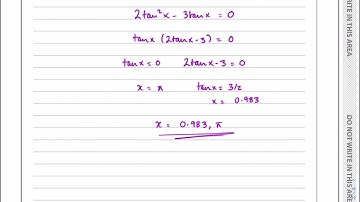 2tan²x - 3tanx = 0
tanx (2tanx - 3) = 0
tanx = 0 2tanx - 3 = 0
x = π tanx = 3/2
x = 0.983
x = 0.983, π
WRITE IN THIS AREA
DO NOT WRITE IN THIS AREA